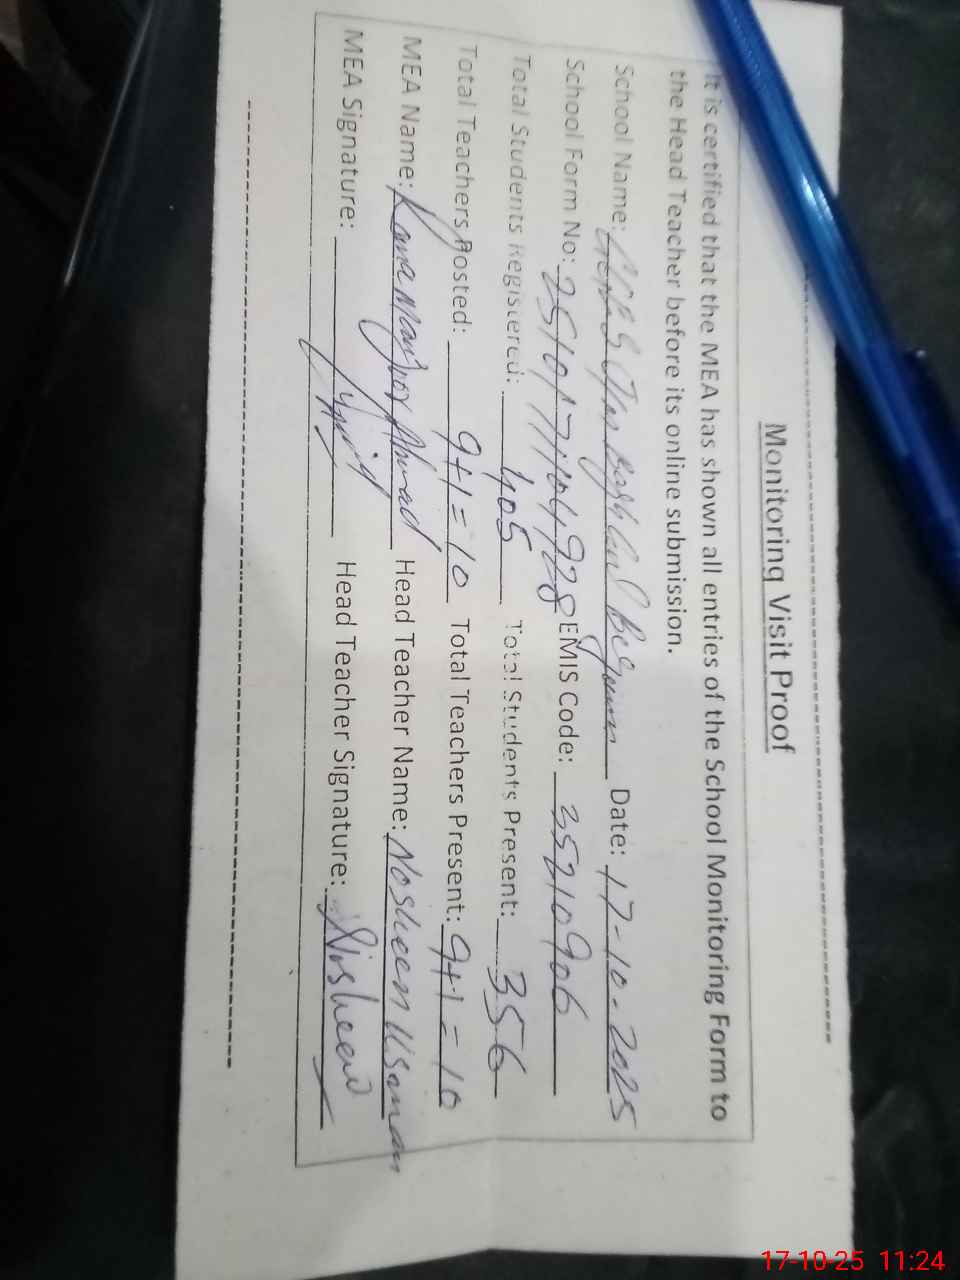 Monitoring Visit Proof
It is certified that the MEA has shown all entries of the School Monitoring Form to
the Head Teacher before its online submission.
School Name: Date: 17-10-2025
School Form No: EMIS Code: 35210906
Total Students Registered: 405 Total Students Present: 356
Total Teachers Posted: 9+1=10 Total Teachers Present: 9+1=10
MEA Name: Ahmad Head Teacher Name: Nosheen Usman
MEA Signature: Head Teacher Signature: Nosheen
17-10-25 11:24